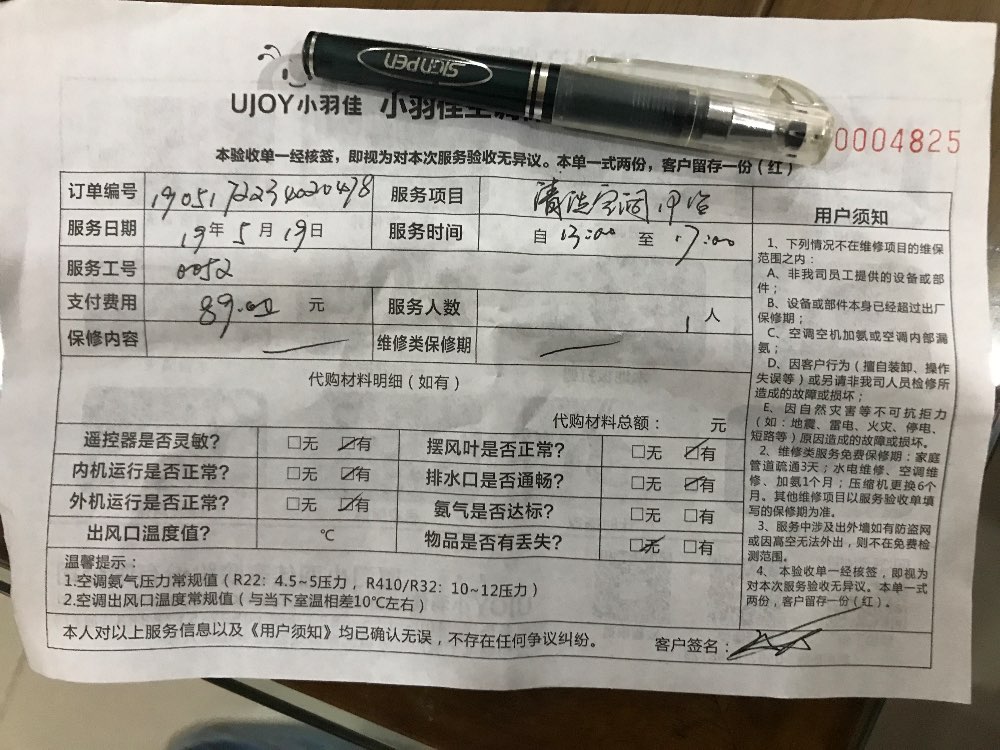 SIGNPEN
UJOY小羽佳 小羽佳空调
0004825
本验收单一经核签，即视为对本次服务验收无异议。本单一式两份，客户留存一份（红）
订单编号 1905172234020478 服务项目 清洗空调
服务日期 19年5月19日 服务时间 自 13:00 至 17:00
服务工号 0052
支付费用 89.00 元 服务人数 1人
保修内容 维修类保修期
代购材料明细（如有）
代购材料总额： 元
遥控器是否灵敏？ □无 ☑有 摆风叶是否正常？ □无 ☑有
内机运行是否正常？ □无 ☑有 排水口是否通畅？ □无 ☑有
外机运行是否正常？ □无 ☑有 氨气是否达标？ □无 □有
出风口温度值？ ℃ 物品是否有丢失？ ☑无 □有
温馨提示：
1.空调氨气压力常规值（R22：4.5~5压力，R410/R32：10~12压力）
2.空调出风口温度常规值（与当下室温相差10℃左右）
本人对以上服务信息以及《用户须知》均已确认无误，不存在任何争议纠纷。 客户签名：
用户须知
1、下列情况不在维修项目的维保
范围之内：
A、非我司员工提供的设备或部
件；
B、设备或部件本身已经超过出厂
保修期；
C、空调空机加氨或空调内部漏
氨；
D、因客户行为（擅自装卸、操作
失误等）或另请非我司人员检修所
造成的故障或损坏；
E、因自然灾害等不可抗拒力
（如：地震、雷电、火灾、停电、
短路等）原因造成的故障或损坏。
2、维修类服务免费保修期：家庭
管道疏通3天；水电维修、空调维
修、加氨1个月；压缩机更换6个
月。其他维修项目以服务验收单填
写的保修期为准。
3、服务中涉及出外墙如有防盗网
或因高空无法外出，则不在免费检
测范围。
4、本验收单一经核签，即视为
对本次服务验收无异议。本单一式
两份，客户留存一份（红）。